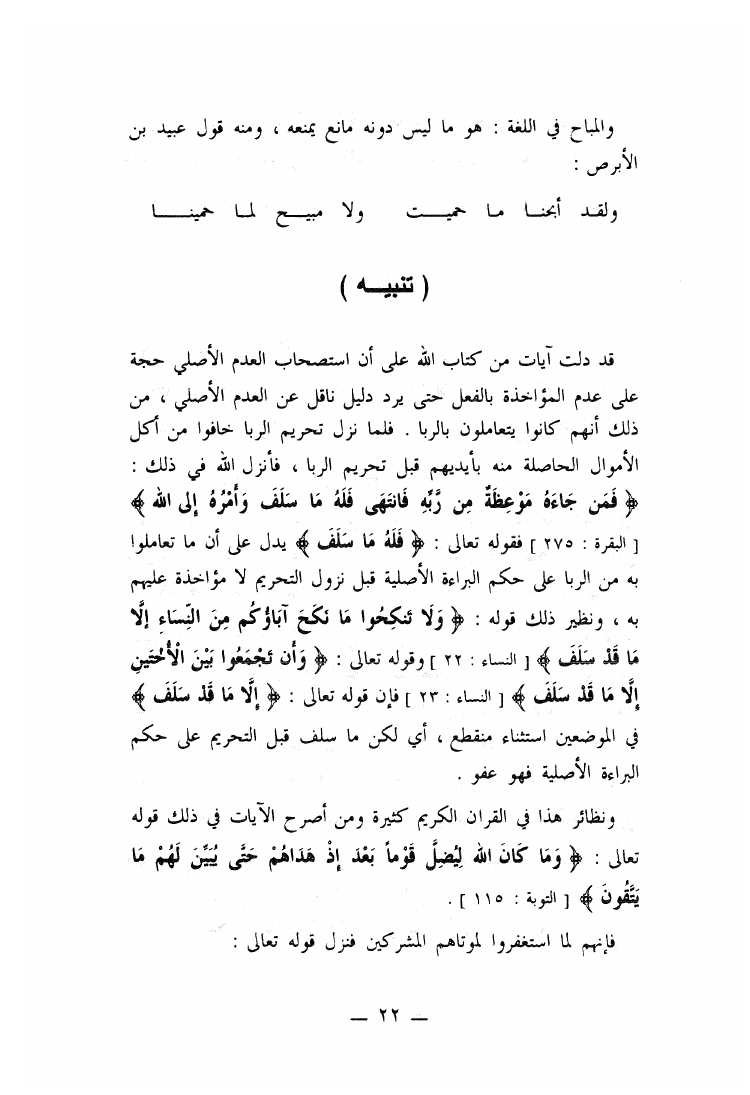 والمباح في اللغة : هو ما ليس دونه مانع يمنعه ، ومنه قول عبيد بن
الأبرص :
ولقد أبحنا ما حميت ولا مبيح لما حمينا
( تنبيه )
قد دلت آيات من كتاب الله على أن استصحاب العدم الأصلي حجة
على عدم المؤاخذة بالفعل حتى يرد دليل ناقل عن العدم الأصلي ، من
ذلك أنهم كانوا يتعاملون بالربا . فلما نزل تحريم الربا خافوا من أكل
الأموال الحاصلة منه بأيديهم قبل تحريم الربا ، فأنزل الله في ذلك :
﴿ فَمَن جَاءَهُ مَوْعِظَةٌ مِن رَّبِّهِ فَانتَهَى فَلَهُ مَا سَلَفَ وَأَمْرُهُ إلى الله ﴾
[ البقرة : ٢٧٥ ] فقوله تعالى : ﴿ فَلَهُ مَا سَلَفَ ﴾ يدل على أن ما تعاملوا
به من الربا على حكم البراءة الأصلية قبل نزول التحريم لا مؤاخذة عليهم
به ، ونظير ذلك قوله : ﴿ وَلَا تَنكِحُوا مَا نَكَحَ آبَاؤُكُم مِنَ النِّسَاءِ إلَّا
مَا قَدْ سَلَفَ ﴾ [ النساء : ٢٢ ] وقوله تعالى : ﴿ وَأَن تَجْمَعُوا بَيْنَ الْأُخْتَينِ
إلَّا مَا قَدْ سَلَفَ ﴾ [ النساء : ٢٣ ] فإن قوله تعالى : ﴿ إلَّا مَا قَدْ سَلَفَ ﴾
في الموضعين استثناء منقطع ، أي لكن ما سلف قبل التحريم على حكم
البراءة الأصلية فهو عفو .
ونظائر هذا في القران الكريم كثيرة ومن أصرح الآيات في ذلك قوله
تعالى : ﴿ وَمَا كَانَ الله لِيُضِلَّ قَوْماً بَعْدَ إذْ هَدَاهُمْ حَتَّى يُبَيِّنَ لَهُمْ مَا
يَتَّقُونَ ﴾ [ التوبة : ١١٥ ] .
فإنهم لما استغفروا لموتاهم المشركين فنزل قوله تعالى :
— ٢٢ —